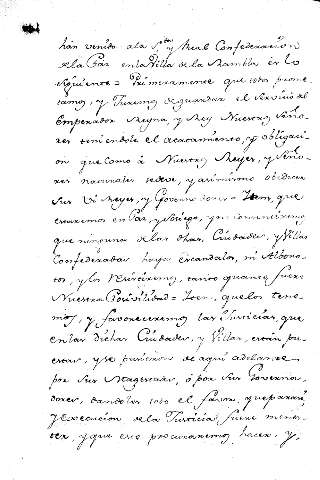 han venido ala S.ta y Real Confederacion
de la Paz en la Villa de la Rambla en lo
siguiente = Primeramente que todos prome
tamos, y Juremos de guardar el Servicio al
Emperador Reyna, y Rey Nuestros Seño
res teniendole el acatamiento, y obligacion
que como à Nuestros Reyes, y Seño
res naturales se deve, y asimismo obedecer
sus Vi Reyes, y Governadores = Item, que
estaremos en Paz, y sosiego, y no consentiremos
que ninguna de las dhas, Ciudades, y Villas
Confederadas haya escandalos, ni Alboro
tos, y los resistiremos, tanto quanto fuere
Nuestra Posivilidad = Iten, que los tene
mos, y favoreceremos las Justicias, que
en las dichas Ciudades, y Villas, están pu
estas, y se pusieren de aqui adelante
por sus Magestades, ó por sus Governa
dores, dandoles todo el favor, que para
Execucion de la Justicia, fuere menes
ter, y que esso procuraremos hacer, y,